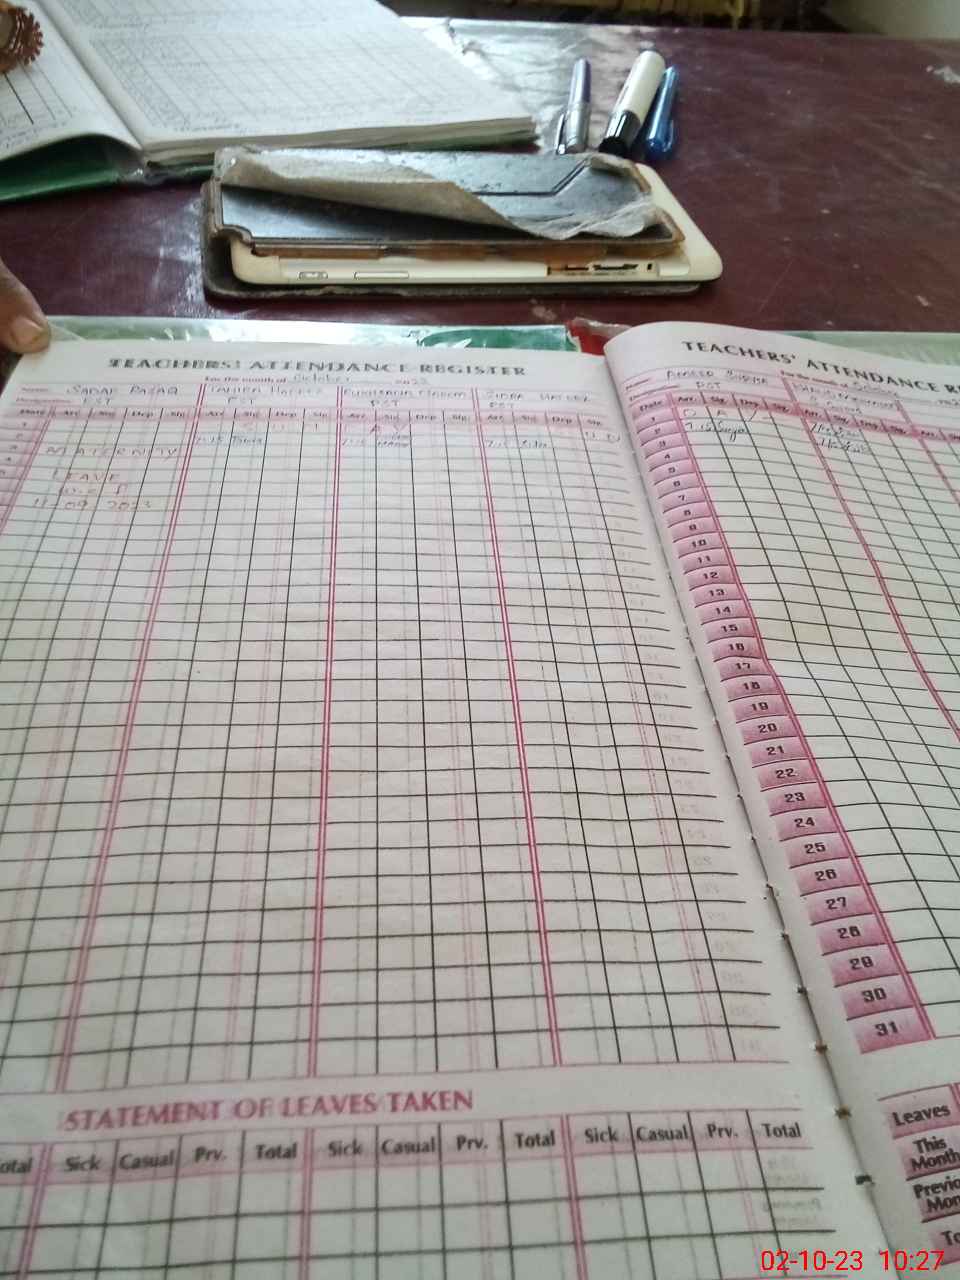 TEACHERS' ATTENDANCE REGISTER
For the month of October 2023
Name: SADAF RAZAQ TAHIRA
Designation: PST PST PST PST
Date Arr. Sig. Dep Sig. Arr. Sig. Dep Sig. Arr. Sig. Dep Sig. Arr. Sig. Dep Sig.
1 S U N D
2 7:15 7:15 7:15
3 MATERNITY
4
LEAVE
w.e.f
11-09-2023
STATEMENT OF LEAVES TAKEN
Total Sick Casual Prv. Total Sick Casual Prv. Total Sick Casual Prv. Total
TEACHERS' ATTENDANCE RE
For the month of
Name:
Designation: PST
Date Arr. Sig. Dep Sig. Arr. Sig. Dep Sig. Arr. Sig.
1 D A Y
2 7:15
3
4
5
6
7
8
9
10
11
12
13
14
15
16
17
18
19
20
21
22
23
24
25
26
27
28
29
30
31
Leaves
This
Month
Previo
Mon
To
02-10-23 10:27